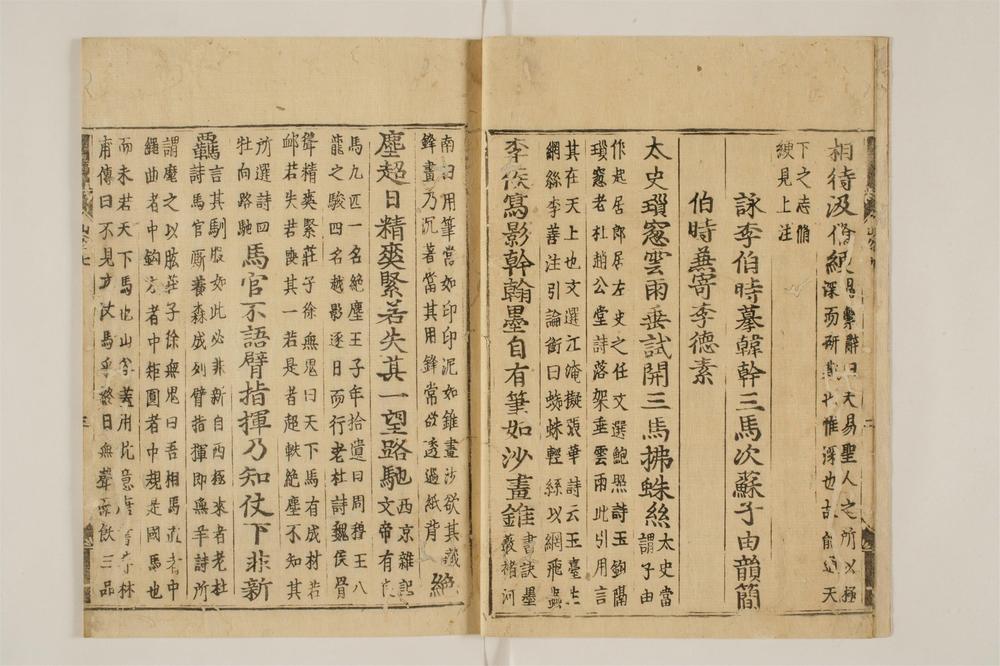 相待汲修綆
易繫辭曰夫易聖人之所以極
深而研幾也惟深也故能通天
下之志脩
綆見上注
詠李伯時摹韓幹三馬次蘇子由韻簡
伯時兼寄李德素
太史瑣窓雲雨垂試開三馬拂蛛絲
太史當
謂子由
作起居郎居左史之任文選鮑照詩玉鉤隔
瑣窓老杜趙公堂詩落架垂雲雨此引用言
其在天上也文選江淹擬張華詩云玉臺生
網絲李善注引論衡曰蜘蛛輕絲以網飛蟲
李侯寫影幹翰墨自有筆如沙畫錐
書訣墨
藪褚河
南曰用筆當如印印泥如錐畫沙欲其藏
鋒畫乃沉著當其用鋒常欲透過紙背
絶
塵超日精爽緊若失其一望路馳
西京雜記
文帝有良
馬九匹一名絶塵王子年拾遺曰周穆王八
龍之駿四名越影逐日而行老杜詩魏侯骨
聳精爽緊莊子徐無鬼曰天下馬有成材若
卹若失若喪其一若是者超軼絶塵不知其
所選詩四
牡向路馳
馬官不語臂指揮乃知仗下非新
羈
言其馴服如此必非新自西極來者老杜
詩馬官厮養森成列臂指揮即無羊詩所
謂麾之以肱莊子徐無鬼曰吾相馬直者中
繩曲者中鉤方者中矩圓者中規是國馬也
而未若天下馬也山谷蓋用此意唐書李林
甫傳曰不見立仗馬乎終日無聲而飫三品